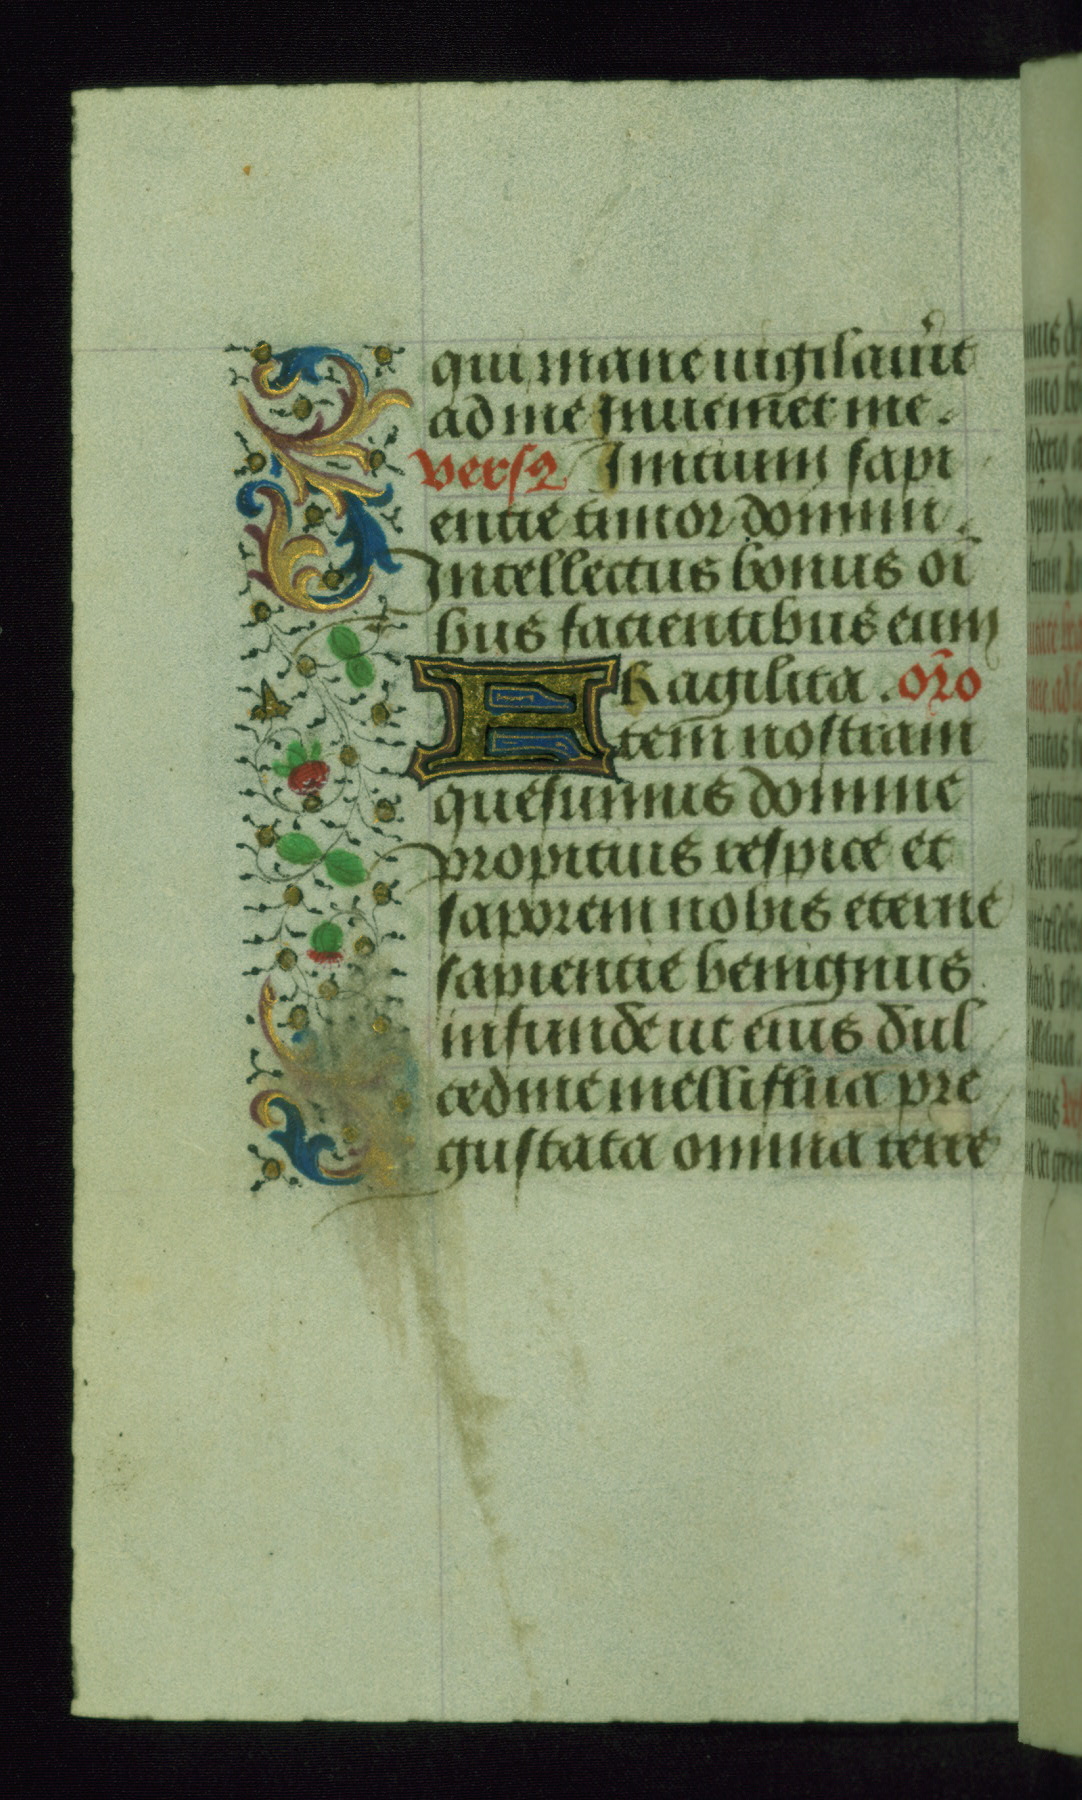 qui mane uigilau̾it
ad me Inueni̅et me.
versꝫ Initium sapi
entie timor domini.
Intellectus bonus oi̅
bus facientibus eum
FRagilita. or̅o
tem̅ nostram
quesumus domine
propitius respice et
saporem nobis eterne
sapientie benignus
infunde ut eius dul
cedine melliflua pre
gustata omnia terre